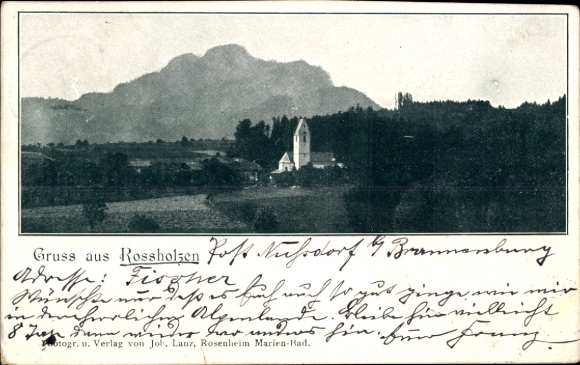 Gruss aus Rossholzen Post Nußdorf b/ Brannenburg
Adresse: Fischer
Wünschte nur daß es Euch auch so gut ginge wie mir
in dem herrlichen Alpenlande. Bleibe hier vielleicht
8 Tage dann wieder
Photogr. u. Verlag von Joh. Lanz, Rosenheim Marien-Bad.